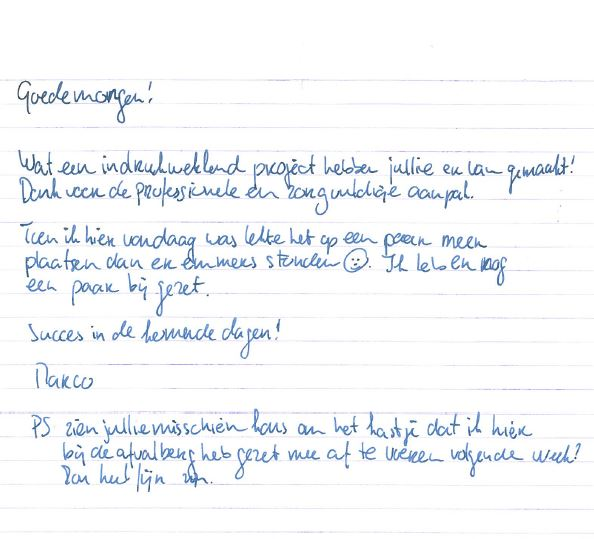 Goedemorgen!
Wat een indrukwekkend project hebben jullie er van gemaakt!
Dank voor de professionele en zorgvuldige aanpak.
Toen ik hier vandaag was lekte het op een paar meer
plaatsen dan er emmers stonden ☺. Ik heb er nog
een paar bij gezet.
Succes in de komende dagen!
Marco
PS zien jullie misschien kans om het kastje dat ik hier
bij de afvalberg heb gezet mee af te voeren volgende week?
Zou heel fijn zijn.